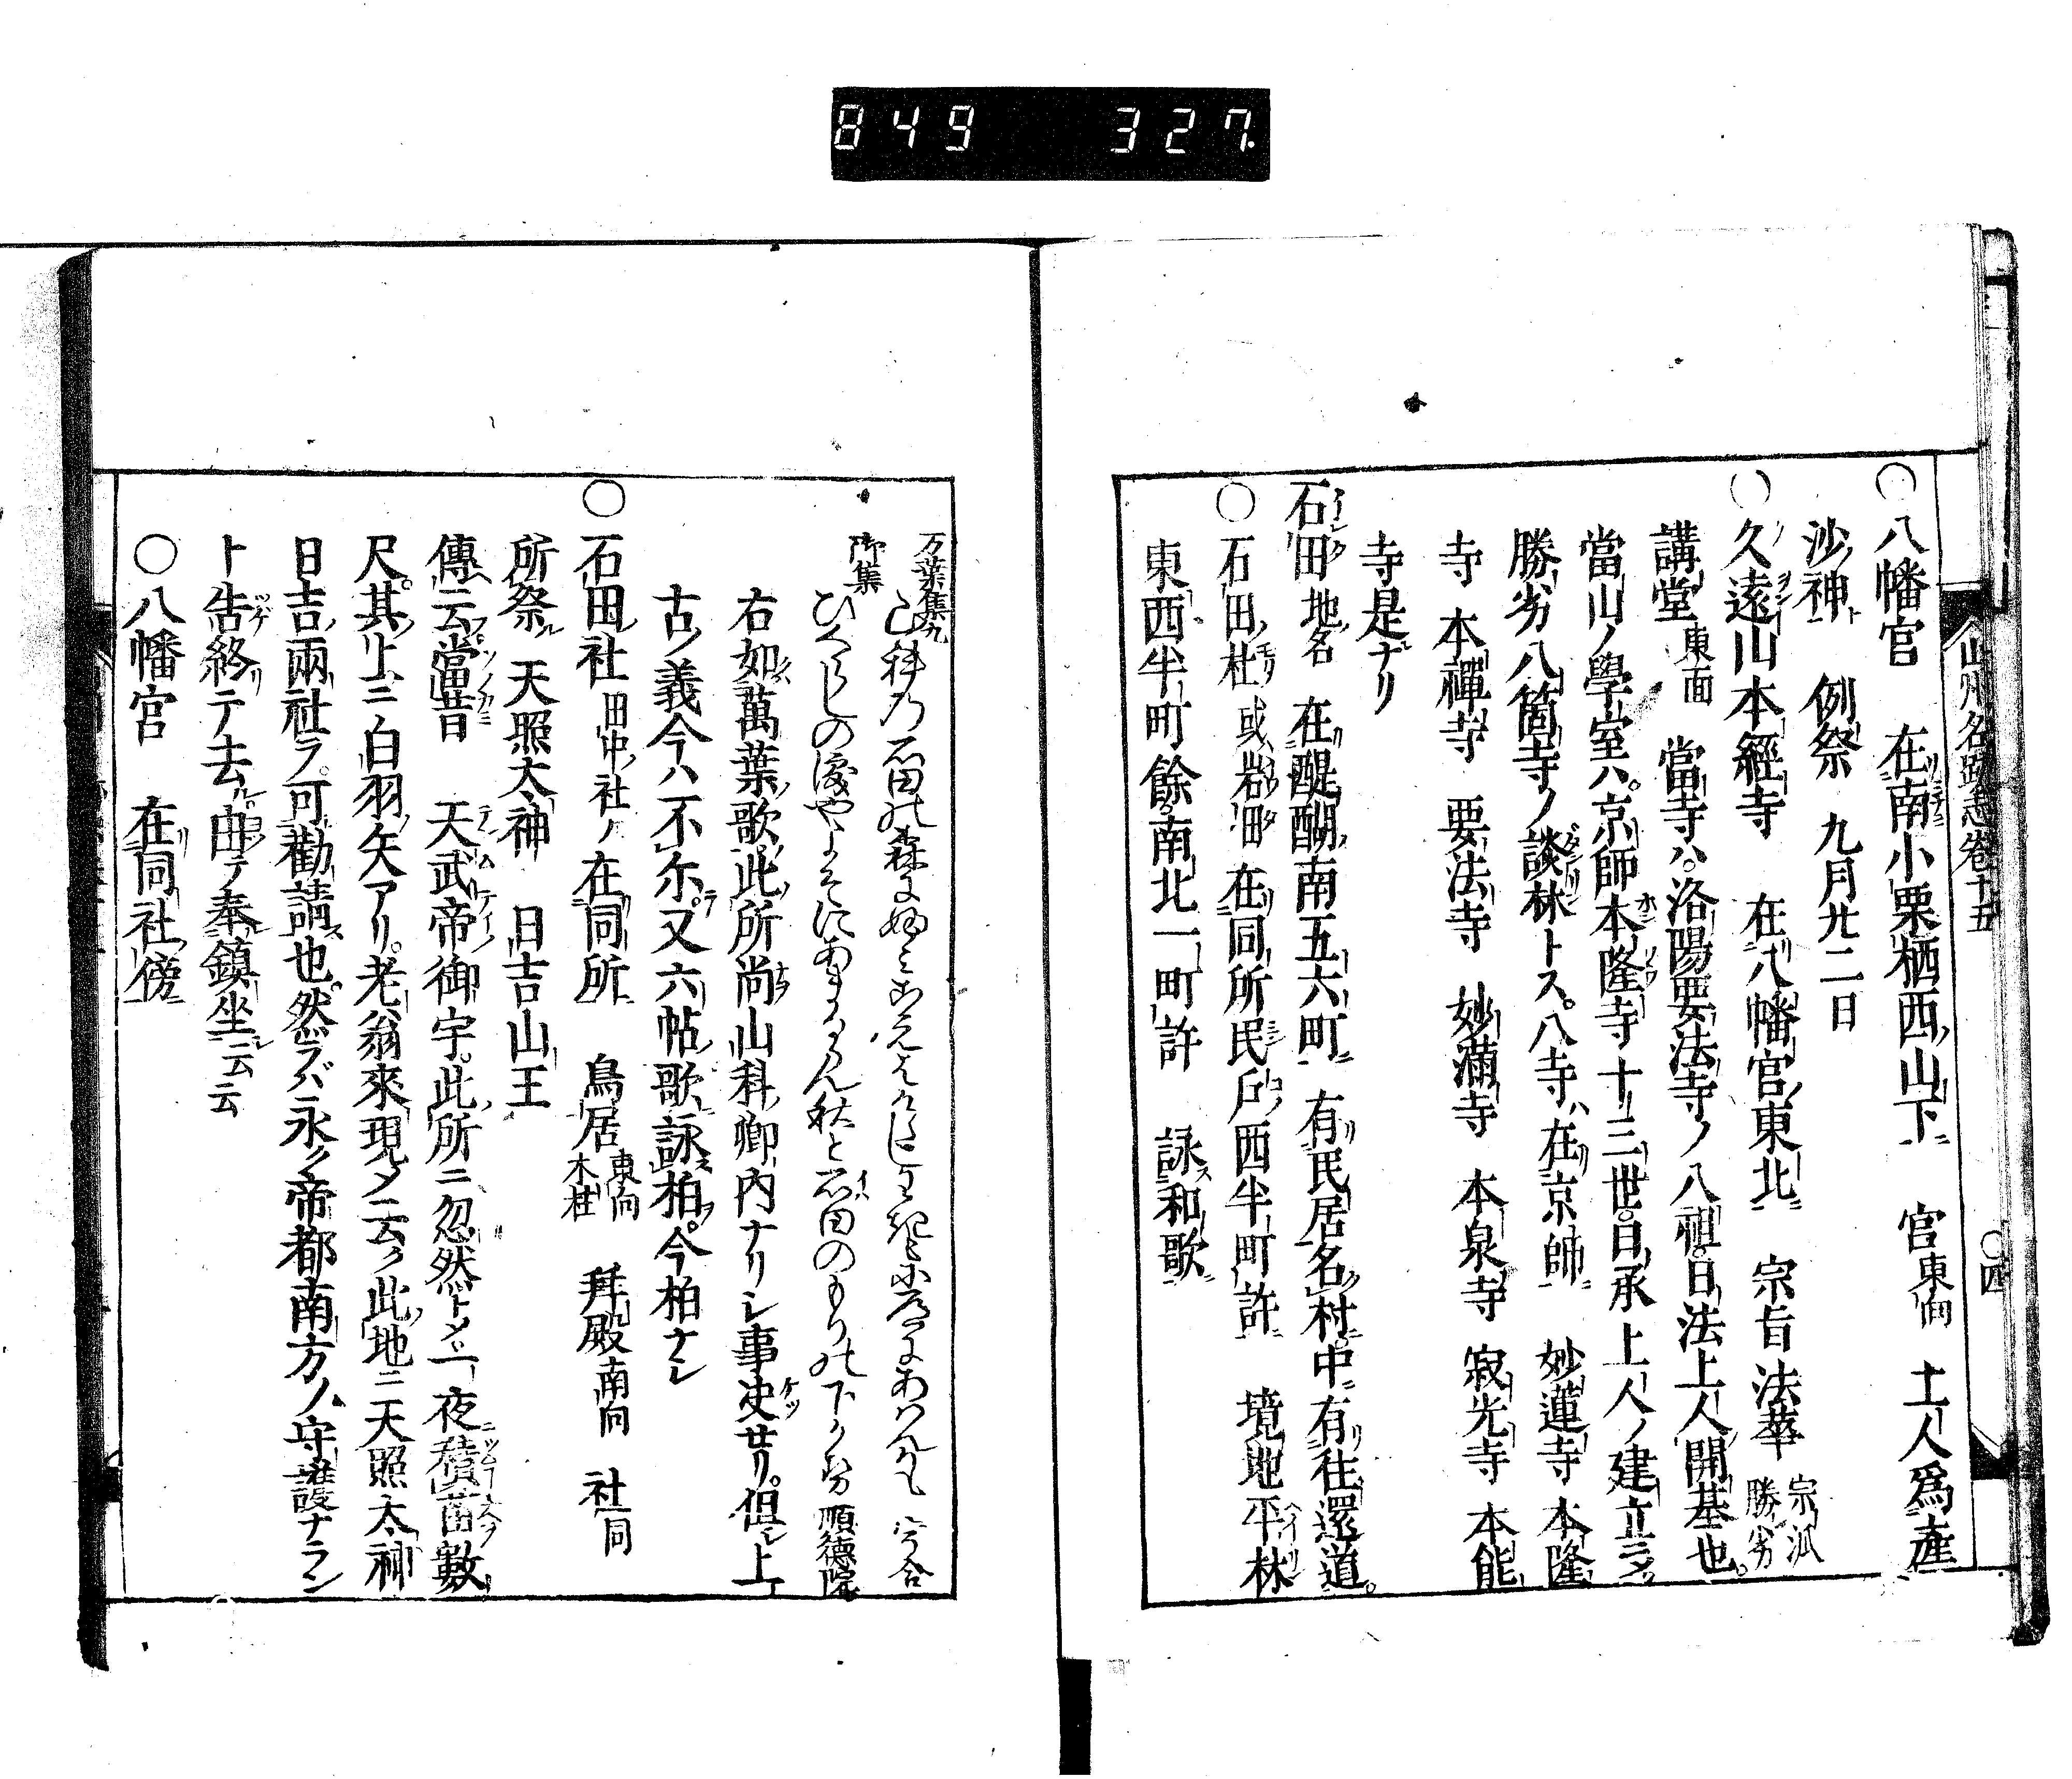 849 327
山州名跡志卷十五
〇四
〇八幡宮 在南小栗栖西山下 宮東向 土人爲產
沙神 例祭 九月廿二日
〇久遠山本經寺 在八幡宮東北 宗旨法華 宗派勝劣
講堂東面 當寺ハ洛陽要法寺ノ八祖日法上人開基也
當山ノ學室ハ京師本隆寺十三世日承上人ノ建立ニメ
勝劣八箇寺ノ談林トス八寺ハ在京師 妙蓮寺 本隆
寺 本禪寺 要法寺 妙滿寺 本泉寺 寂光寺 本能
寺是ナリ
石田地名 在醍醐南五六町 有民居名村中有往還道
〇石田杜或岩田 在同所民戸西半町許 境地平林
東西半町餘南北一町許 詠和歌
万葉集九
御集 順德院
右如萬葉歌此所尚山科郷内ナリシ事决セリ但上
古ノ義今ハ不尓又六帖歌詠柏今柏ナシ
〇石田社田中社ノ在同所 鳥居東向木柱 拜殿南向 社同
所祭 天照太神 日吉山王
傳云當昔 天武帝御宇此所ニ忽然トメ一夜積苗數
尺其上ニ白羽矢アリ老翁來現メ云ク此地ニ天照太神
日吉兩社ヲ可勸請也然ラバ永ク帝都南方ノ守護ナラン
ト告終テ去由テ奉鎭坐云云
〇八幡宮 在同社傍